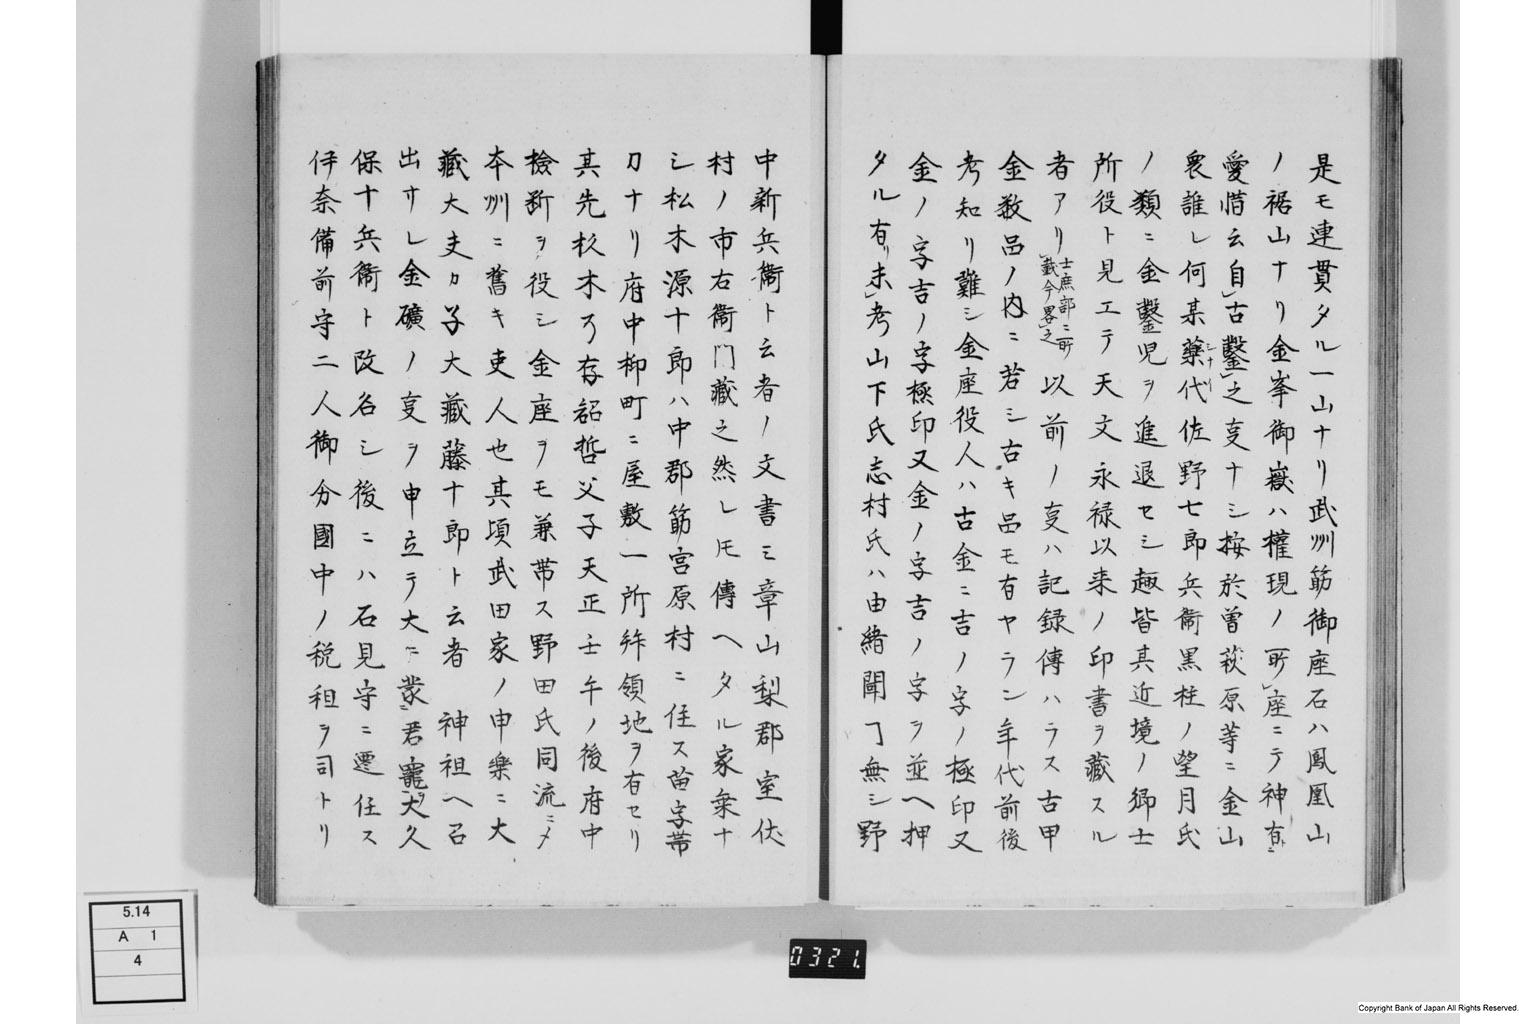 是モ連貫タル一山ナリ武州筋御座石ハ鳳凰山
ノ裾山ナリ金峯御嶽ハ權現ノ所座ニテ神有
愛惜云自古鑿之㕝ナシ按於曽萩原等ニ金山
衆誰レ何某藥代佐野七郎兵衛黒桂ノ望月氏
ノ類ニ金鑿児ヲ進退セシ趣皆其近境ノ郷士
所役ト見エテ天文永禄以来ノ印書ヲ藏スル
者アリ士庶部ニ所載今畧之以前ノ㕝ハ記録傳ハラス古甲
金数品ノ内ニ若シ古キ品モ有ヤラン年代前後
考知リ難シ金座役人ハ古金ニ吉ノ字ノ極印又
金ノ字吉ノ字極印又金ノ字吉ノ字ヲ並ヘ押
タル有リ未考山下氏志村氏ハ由緒聞ヿ無シ野
中新兵衛ト云者ノ文書ミ章山梨郡室伏
村ノ市右衛門藏之然レ𪜈傳ヘタル家乗ナ
シ松木源十郎ハ中郡筋宮原村ニ住ス苗字帯
刀ナリ府中柳町ニ屋敷一所幷領地ヲ有セリ
其先杦木乃存紹哲父子天正壬午ノ後府中
検断ヲ役シ金座ヲモ兼帯ス野田氏同流ニ〆
本州ニ舊キ吏人也其頃武田家ノ申樂ニ大
藏大夫カ子大藏藤十郎ト云者 神祖ヘ召
出サレ金礦ノ㕝ヲ申立テ大ニ蒙君寵ヲ大久
保十兵衛ト改名シ後ニハ石見守ニ遷任ス
伊奈備前守二人御分國中ノ税租ヲ司トリ
5.14
A 1
4
0321.
Copyright Bank of Japan All Rights Reserved.